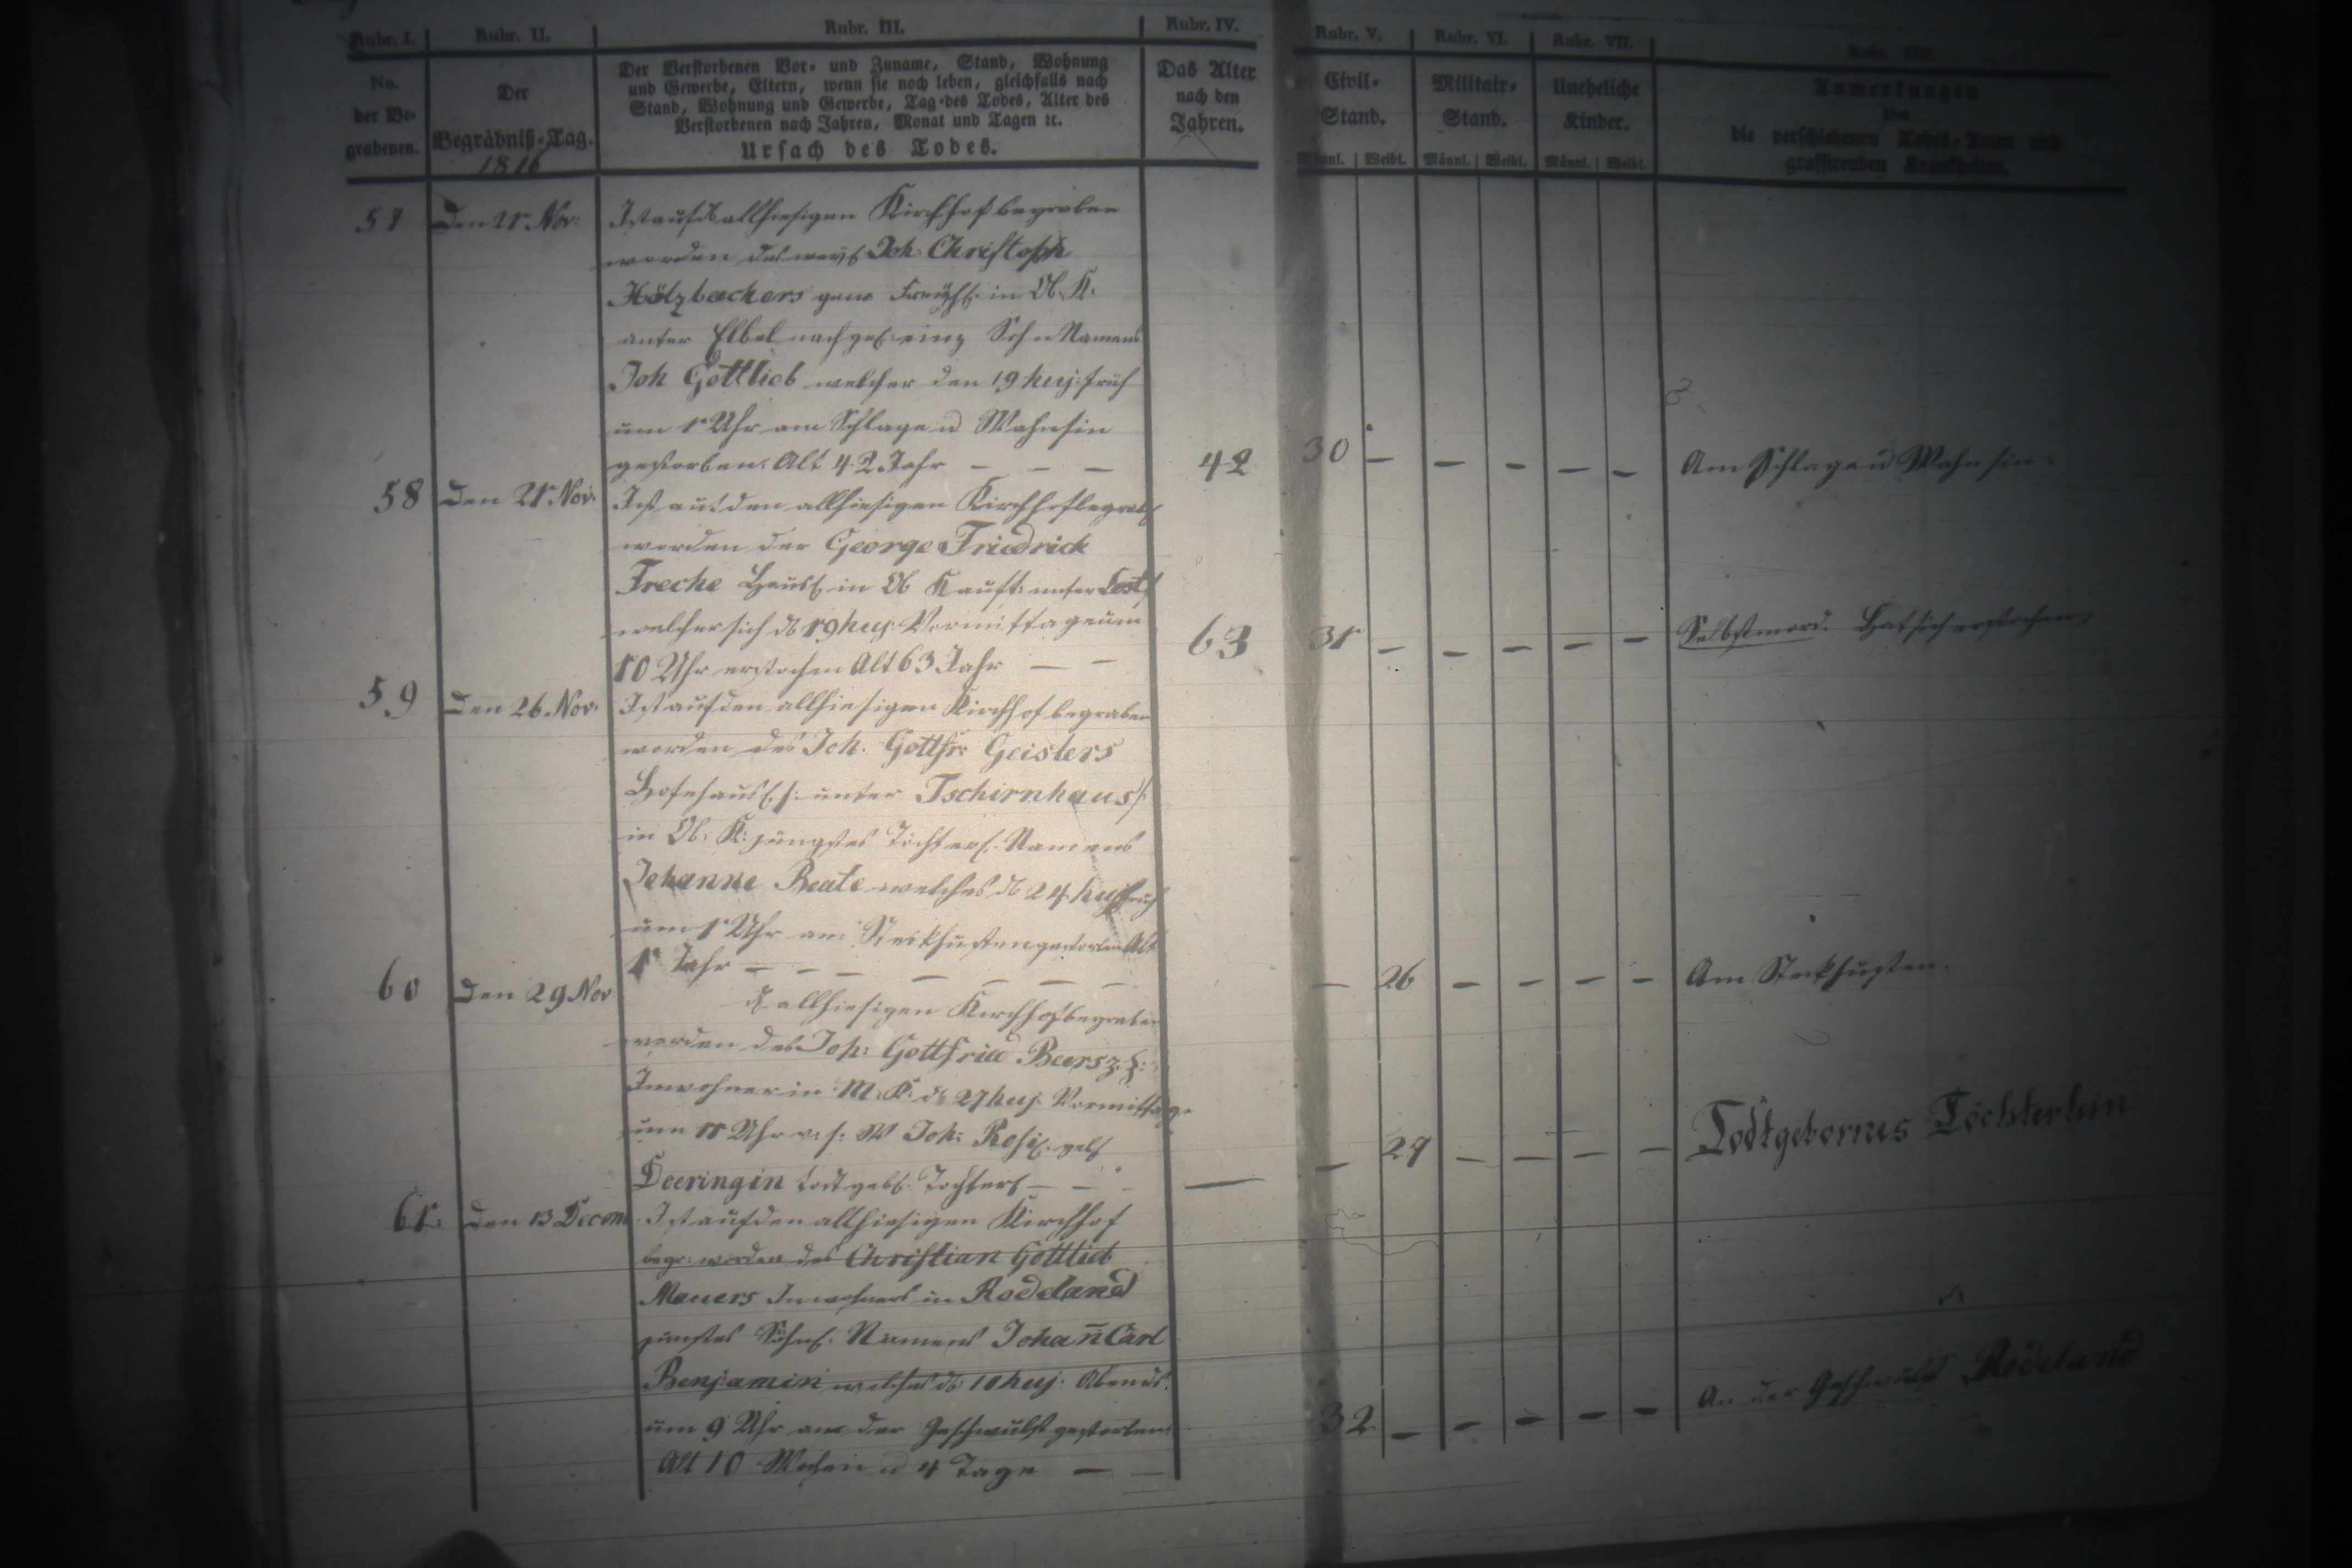 Rubr. I. Rubr. II. Rubr. III. Rubr. IV. Rubr. V. Rubr. VI. Rubr. VII. Rubr. VIII.
No. der Be- grabenen.
Der Begräbniß-Tag.
1816
Der Verstorbenen Vor- und Zuname, Stand, Wohnung
und Gewerbe, Eltern, wenn sie noch leben, gleichfalls nach
Stand, Wohnung und Gewerbe, Tag des Todes, Alter des
Verstorbenen nach Jahren, Monat und Tagen ꝛc.
Ursach des Todes.
Das Alter
nach den
Jahren.
Civil-
Stand.
Männl. Weibl.
Militair-
Stand.
Männl. Weibl.
Uneheliche
Kinder.
Männl. Weibl.
Anmerkungen
über
die verschiedenen Todes-Arten und
grassirenden Krankheiten.
57 Den 21 Nov: Ist auf d allhiesigen Kirchhof begraben
worden des Joh Christoph
Hölzbechers in Ob. K.
unter Elbel nachgel. einz Sohn Namens
Joh Gottlieb welcher den 19 huj: früh
um 1 Uhr am Schlage u Wahnsin
gestorben. Alt 42 Jahr — — — 42 30 — — — — — Am Schlage u Wahnsin
58 Den 21 Nov. Ist auf den allhiesigen Kirchhof begrab
worden der George Friedrich
Treche Häusl in Ob Kauff: unter
welcher sich d 19 huj. Vormittage um
10 Uhr erstochen Alt 63 Jahr — — 63 31 — — — — — Selbstmord. Hat sich erstochen
59 Den 26. Nov. Ist auf den allhiesigen Kirchhof begraben
worden des Joh. Gottfr. Geislers
Hofehäusl. unter Tschirnhaus
in Ob: K: jüngstes Töchterl. Namens
Johanne Beate welches d 24 huj früh
um 1 Uhr am Steckhusten gestorben Alt
1 Jahr — — — — — — — — 26 — — — — Am Steckhusten.
60 Den 29 Nov allhiesigen Kirchhof begraben
worden des Joh: Gottfried Beers
Inwohner in M: K: d 27 huj. Vormittage
um 11 Uhr v. s: W Joh: Rosi: geb
Deeringin todtgeb. Töchterl — — — — 27 — — — — Todtgebornes Töchterlein
61. Den 13 Decem Ist auf den allhiesigen Kirchhof
begr: worden des Christian Gottlieb
Mauers Inwohners in Rodeland
jüngstes Söhnl. Namens Johan̄ Carl
Benjamin welches d: 10 huj: Abends.
um 9 Uhr an der Geschwulst gestorben.
Alt 10 Wochen u 4 Tage — — 32 — — — — — An der Geschwulst Rodeland